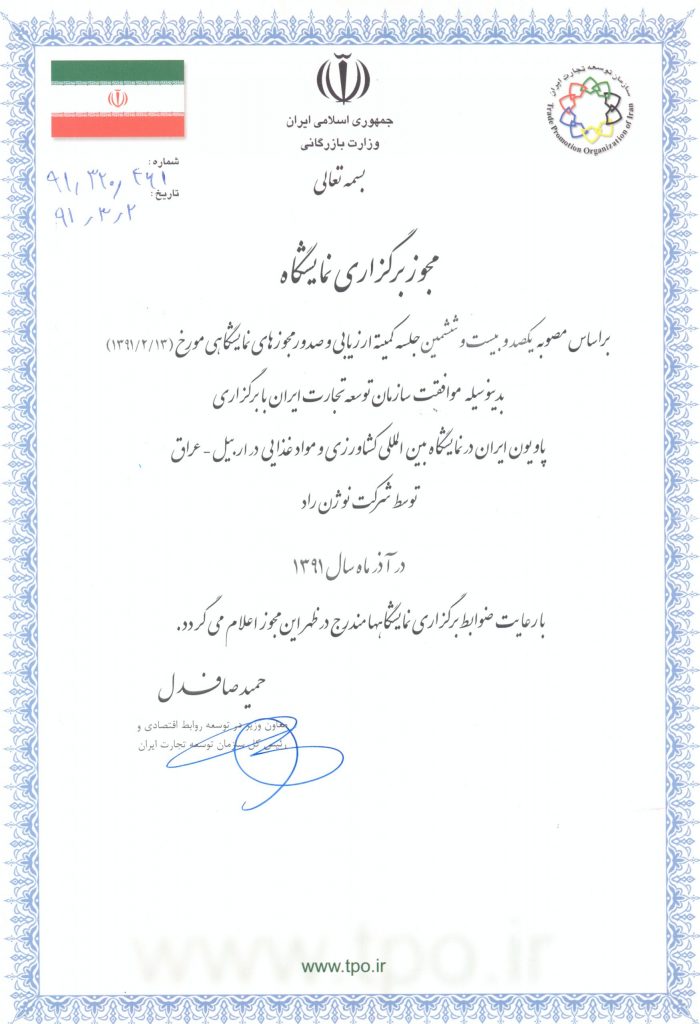 جمهوری اسلامی ایران
وزارت بازرگانی
سازمان توسعه تجارت ایران
Trade Promotion Organization of Iran
شماره:
۹۱,۳۲۰,۴۶۱
تاریخ:
۹۱,۳,۲
بسمه تعالی
مجوز برگزاری نمایشگاه
براساس مصوبه یکصد و بیست و ششمین جلسه کمیته ارزیابی و صدور مجوزهای نمایشگاهی مورخ (۱۳۹۱/۲/۱۳)
بدینوسیله موافقت سازمان توسعه تجارت ایران با برگزاری
پاویون ایران در نمایشگاه بین المللی کشاورزی و مواد غذایی در اربیل - عراق
توسط شرکت نوژن راد
در آذر ماه سال ۱۳۹۱
با رعایت ضوابط برگزاری نمایشگاهها مندرج در ظهر این مجوز اعلام می گردد.
حمید صافدل
معاون وزیر در توسعه روابط اقتصادی و
رئیس کل سازمان توسعه تجارت ایران
www.tpo.ir
www.tpo.ir